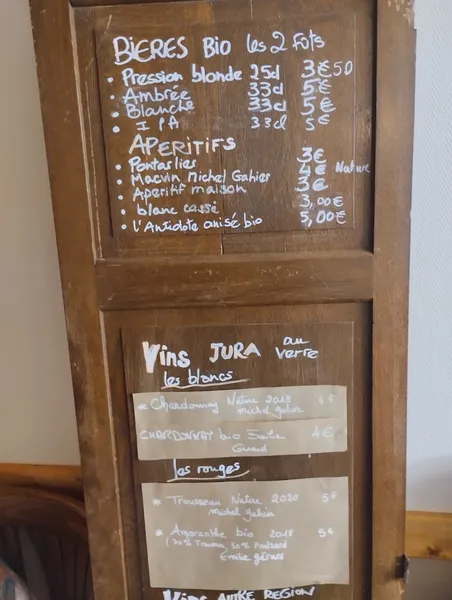 BIERES BIO les 2 fots
• Pression blonde 25d 3€50
• Ambrée 33d 5€
• Blanche 33d 5€
• IPA 33d 5€
APERITIFS
• Pontarlies 3€
• Macvin Michel Gahier 4€ Nature
• Aperitif maison 3€
• blanc cassé 3,00€
• l'Antidote anisé bio 5,00€
Vins JURA au verre
les blancs
* Chardonnay Nature 2018 €
michel
CHARDONNAY bio 4€
les rouges
* Trousseau Nature 2020 5€
michel gahier
* Amaranthe bio 2018 5€
Emilie
Vins AUTRE REGION